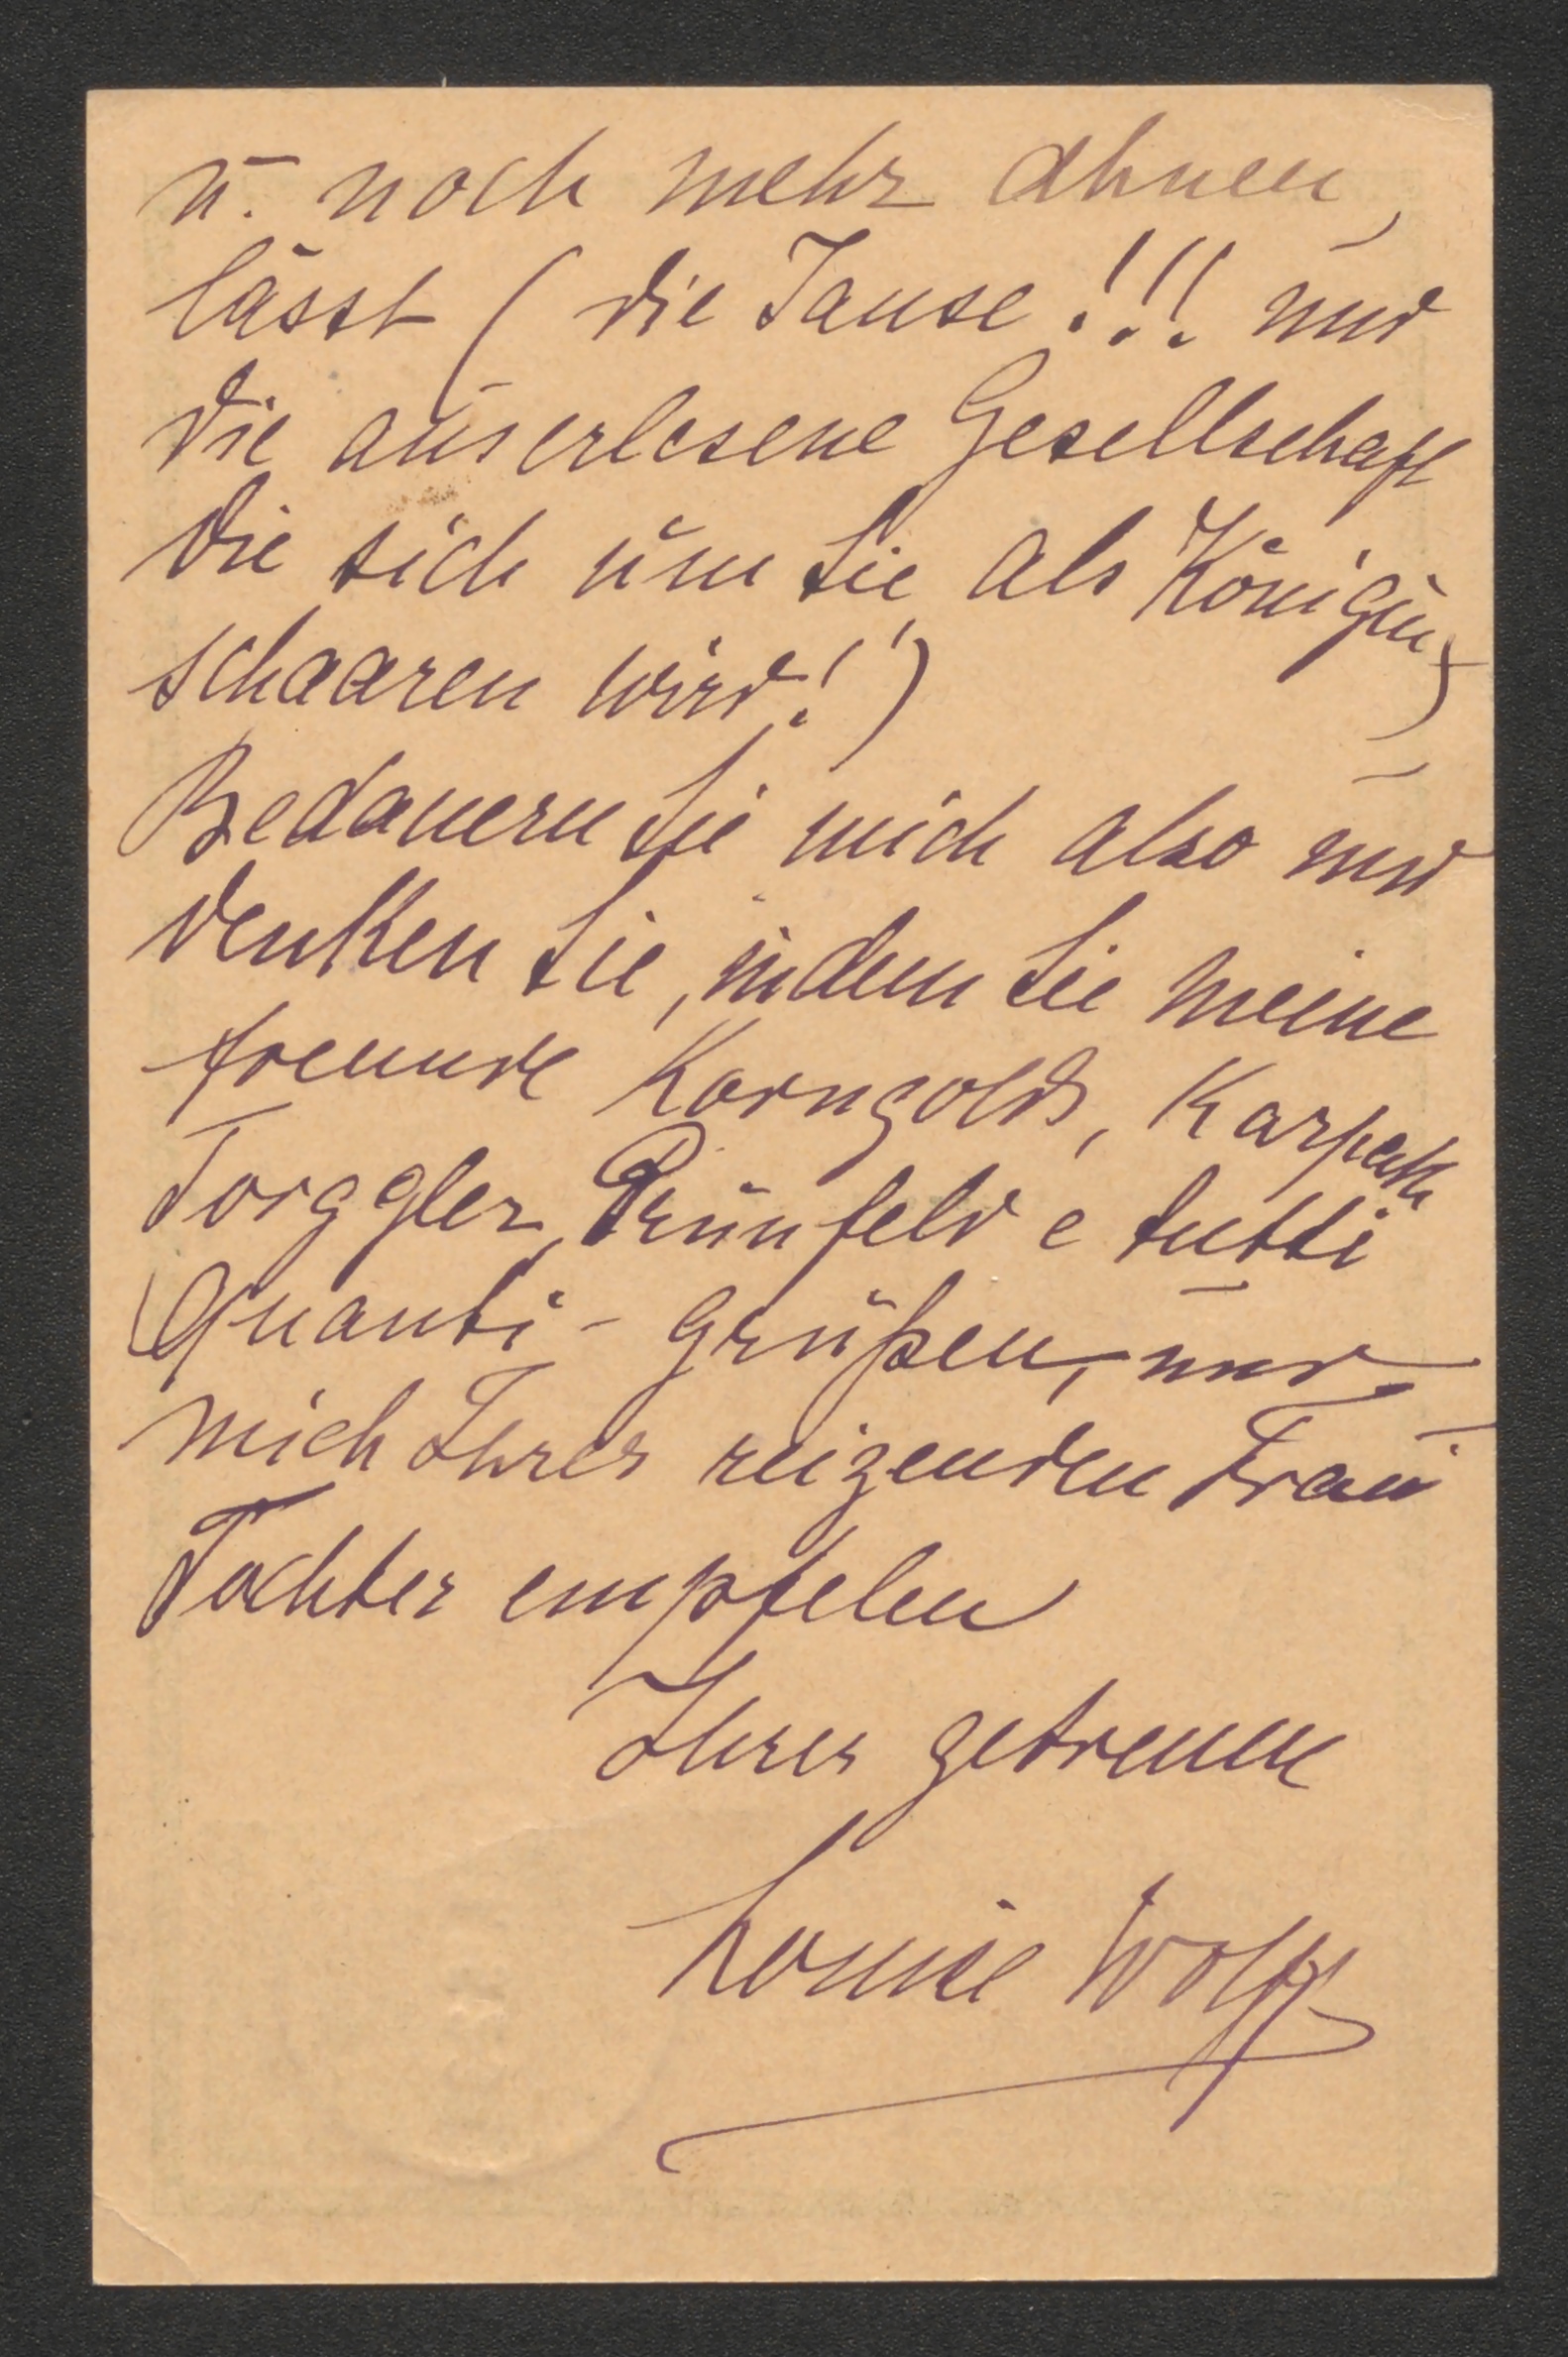 u. noch mehr ahnen
lässt (die Jause!!! und
die auserlesene Gesellschaft
die sich um Sie als Königin
schaaren wird!)
Bedauern Sie mich also und
denken Sie, indem Sie meine
Freunde Korngolds, Karpath
Torggler, Grünfeld e tutti
quanti - grüßen, und
mich Ihrer reizenden Frau
Tochter empfelen
Ihrer getreuen
Louise Wolff